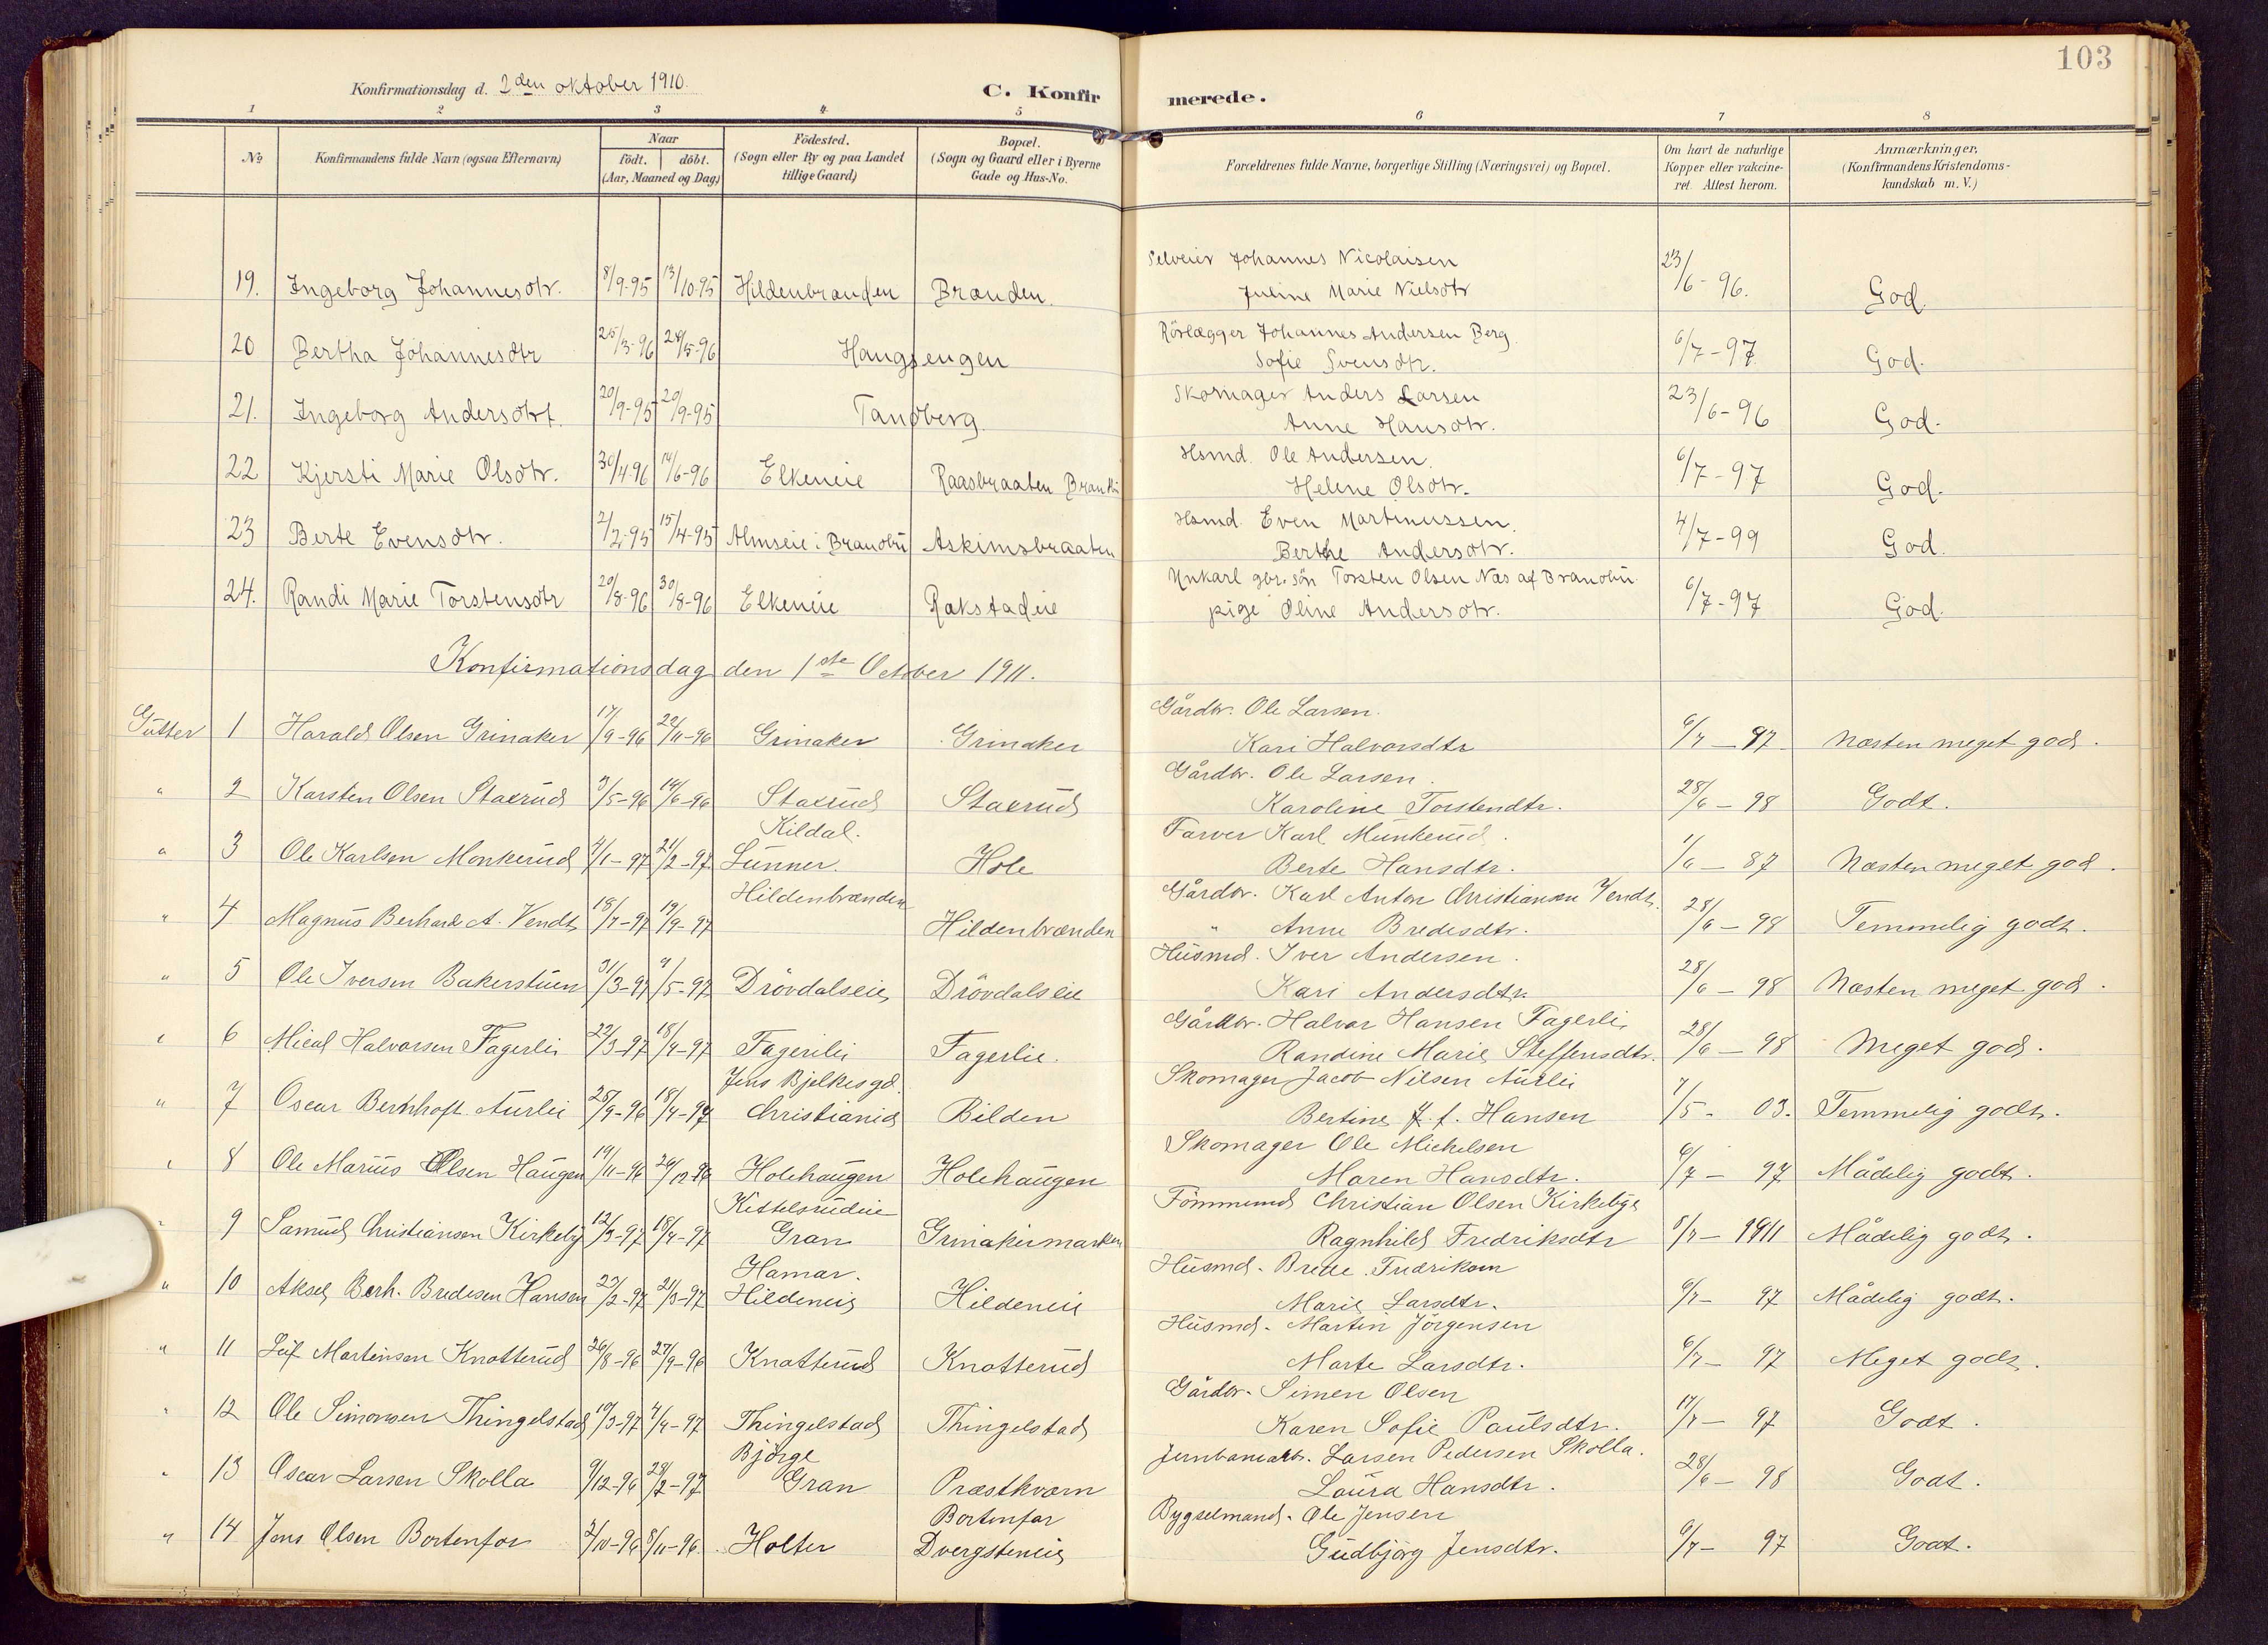 103
Konfirmationsdag d. 2den oktober 1910.
C. Konfirmerede.
1 2 3 4 5 6 7 8
No
Konfirmandens fulde Navn (ogsaa Efternavn)
Naar
födt. döbt.
(Aar, Maaned og Dag)
Födested.
(Sogn eller By og paa Landet
tillige Gaard)
Bopæl.
(Sogn og Gaard eller i Byerne
Gade og Hus-No.
Forældrenes fulde Navne, borgerlige Stilling (Næringsvei) og Bopæl.
Om havt de naturlige
Kopper eller vakcine-
ret. Attest herom.
Anmærkninger.
(Konfirmandens Kristendoms-
kundskab m. V.)
Selveier Johannes Nicolaisen
19. Ingeborg Johannesdtr. 8/9-95 13/10-95 Hildenbranden Branden. Juline Marie Nielsdtr 23/6-96. God.
Rörlægger Johannes Andersen Berg.
20 Bertha Johannesdtr 25/3-96 24/5-96 Haugsengen Sofie Svensdtr. 6/7-97 God.
Skomager Anders Larsen
21. Ingeborg Andersdtr. 20/9-95 29/9-95 Tandberg. Anne Hansdtr. 23/6-96 God.
Hsmd. Ole Andersen.
22 Kjersti Marie Olsdtr. 30/4-96 14/6-96 Elkeneie Raasbraaten Helene Olsdtr. 6/7-97 God.
Hsmd. Even Martinussen.
23 Berte Evensdtr. 2/2-95 15/4-95 Almseie i Brandbu Askimsbraaten Berthe Andersdtr. 4/7-99 God.
Unkarl gbr. sön Torsten Olsen Næs af Brandbu
24. Randi Marie Torstensdtr 20/8-96 30/8-96 Elkeneie Rakstadeie pige Oline Andersdtr. 6/7-97 God.
Konfirmationsdag den 1ste October 1911.
Gårdbr. Ole Larsen.
Gutter 1 Harald Olsen Grinaker 17/9-96 22/11-96 Grinaker Grinaker Kari Halvorsdtr 6/7-97 Næsten meget god.
Gårdbr. Ole Larsen.
" 2 Karsten Olsen Staxrud 3/5-96 14/6-96 Staxrud Staxrud Karoline Torstendtr. 28/6-98 Godt.
Kildal. Farver Karl Munkerud.
" 3 Ole Karlsen Monkerud 4/1-97 21/2-97 Lunner. Hole Berte Hansdtr. 1/6-87 Næsten meget god.
Hildenbrænden Gårdbr. Karl Anton Christiansen Vendt.
" 4 Magnus Berhard A. Vendt 18/7-97 19/9-97 Hildenbrænden " Anne Bredesdtr. 28/6-98 Temmelig godt.
Husmd. Iver Andersen.
" 5 Ole Iversen Bakerstuen 31/3-97 9/5-97 Drövdalseie Drövdalseie Kari Andersdtr. 28/6-98 Næsten meget god.
Gårdbr. Halvor Hansen Fagerli
" 6 Mical Halvorsen Fagerli 22/3-97 18/4-97 Fagerlie Fagerlie. Randine Marie Steffensdtr. 28/6-98 Meget god.
Jens Bjelkes gd. Skomager Jacob Nilsen Aurlii
" 7 Oscar Bernhoft Aurlii 28/9-96 18/4-97 Christiania Bilden Bertine f. Hansen 7/5-03. Temmelig godt.
Skomager Ole Michelsen
" 8 Ole Marius Olsen Haugen 19/11-96 26/12-96 Holehaugen Holehaugen Maren Hansdtr. 6/7-97 Mådelig godt.
Kittelsrudeie Christian Olsen Kirkebye
" 9 Samuel Christiansen Kirkeby 12/3-97 18/4-97 Gran Grinakermarken Ragnhild Fredriksdtr 8/7-1911 Mådelig godt.
Hamar. Husmd. Brede Fredriksen
" 10 Aksel Berh. Bredesen Hansen 22/2-97 21/3-97 Hildeneie Hildeneie Marie Larsdtr. 6/7-97 Mådelig godt.
Husmd. Martin Jörgensen
" 11 Leif Martinsen Knatterud 26/8-96 27/9-96 Knatterud Knatterud Marte Larsdtr. 6/7-97 Meget godt.
Gårdbr. Simen Olsen
" 12 Ole Simonsen Thingelstad 10/3-97 4/4-97 Thingelstad Thingelstad Karen Sofie Paulsdtr. 17/7-97 Godt.
Björge Jernbanearb. Larsen Pedersen Skolla.
" 13 Oscar Larsen Skolla 9/12-96 28/2-97 Gran Præstkværn Laura Hansdtr. 28/6-98 Godt.
Bortenfor Bygselmand. Ole Jensen
" 14 Jens Olsen Bortenfor 2/10-96 8/11-96 Holter Dvergsteneie Gudbjörg Jensdtr. 6/7-97 Godt.